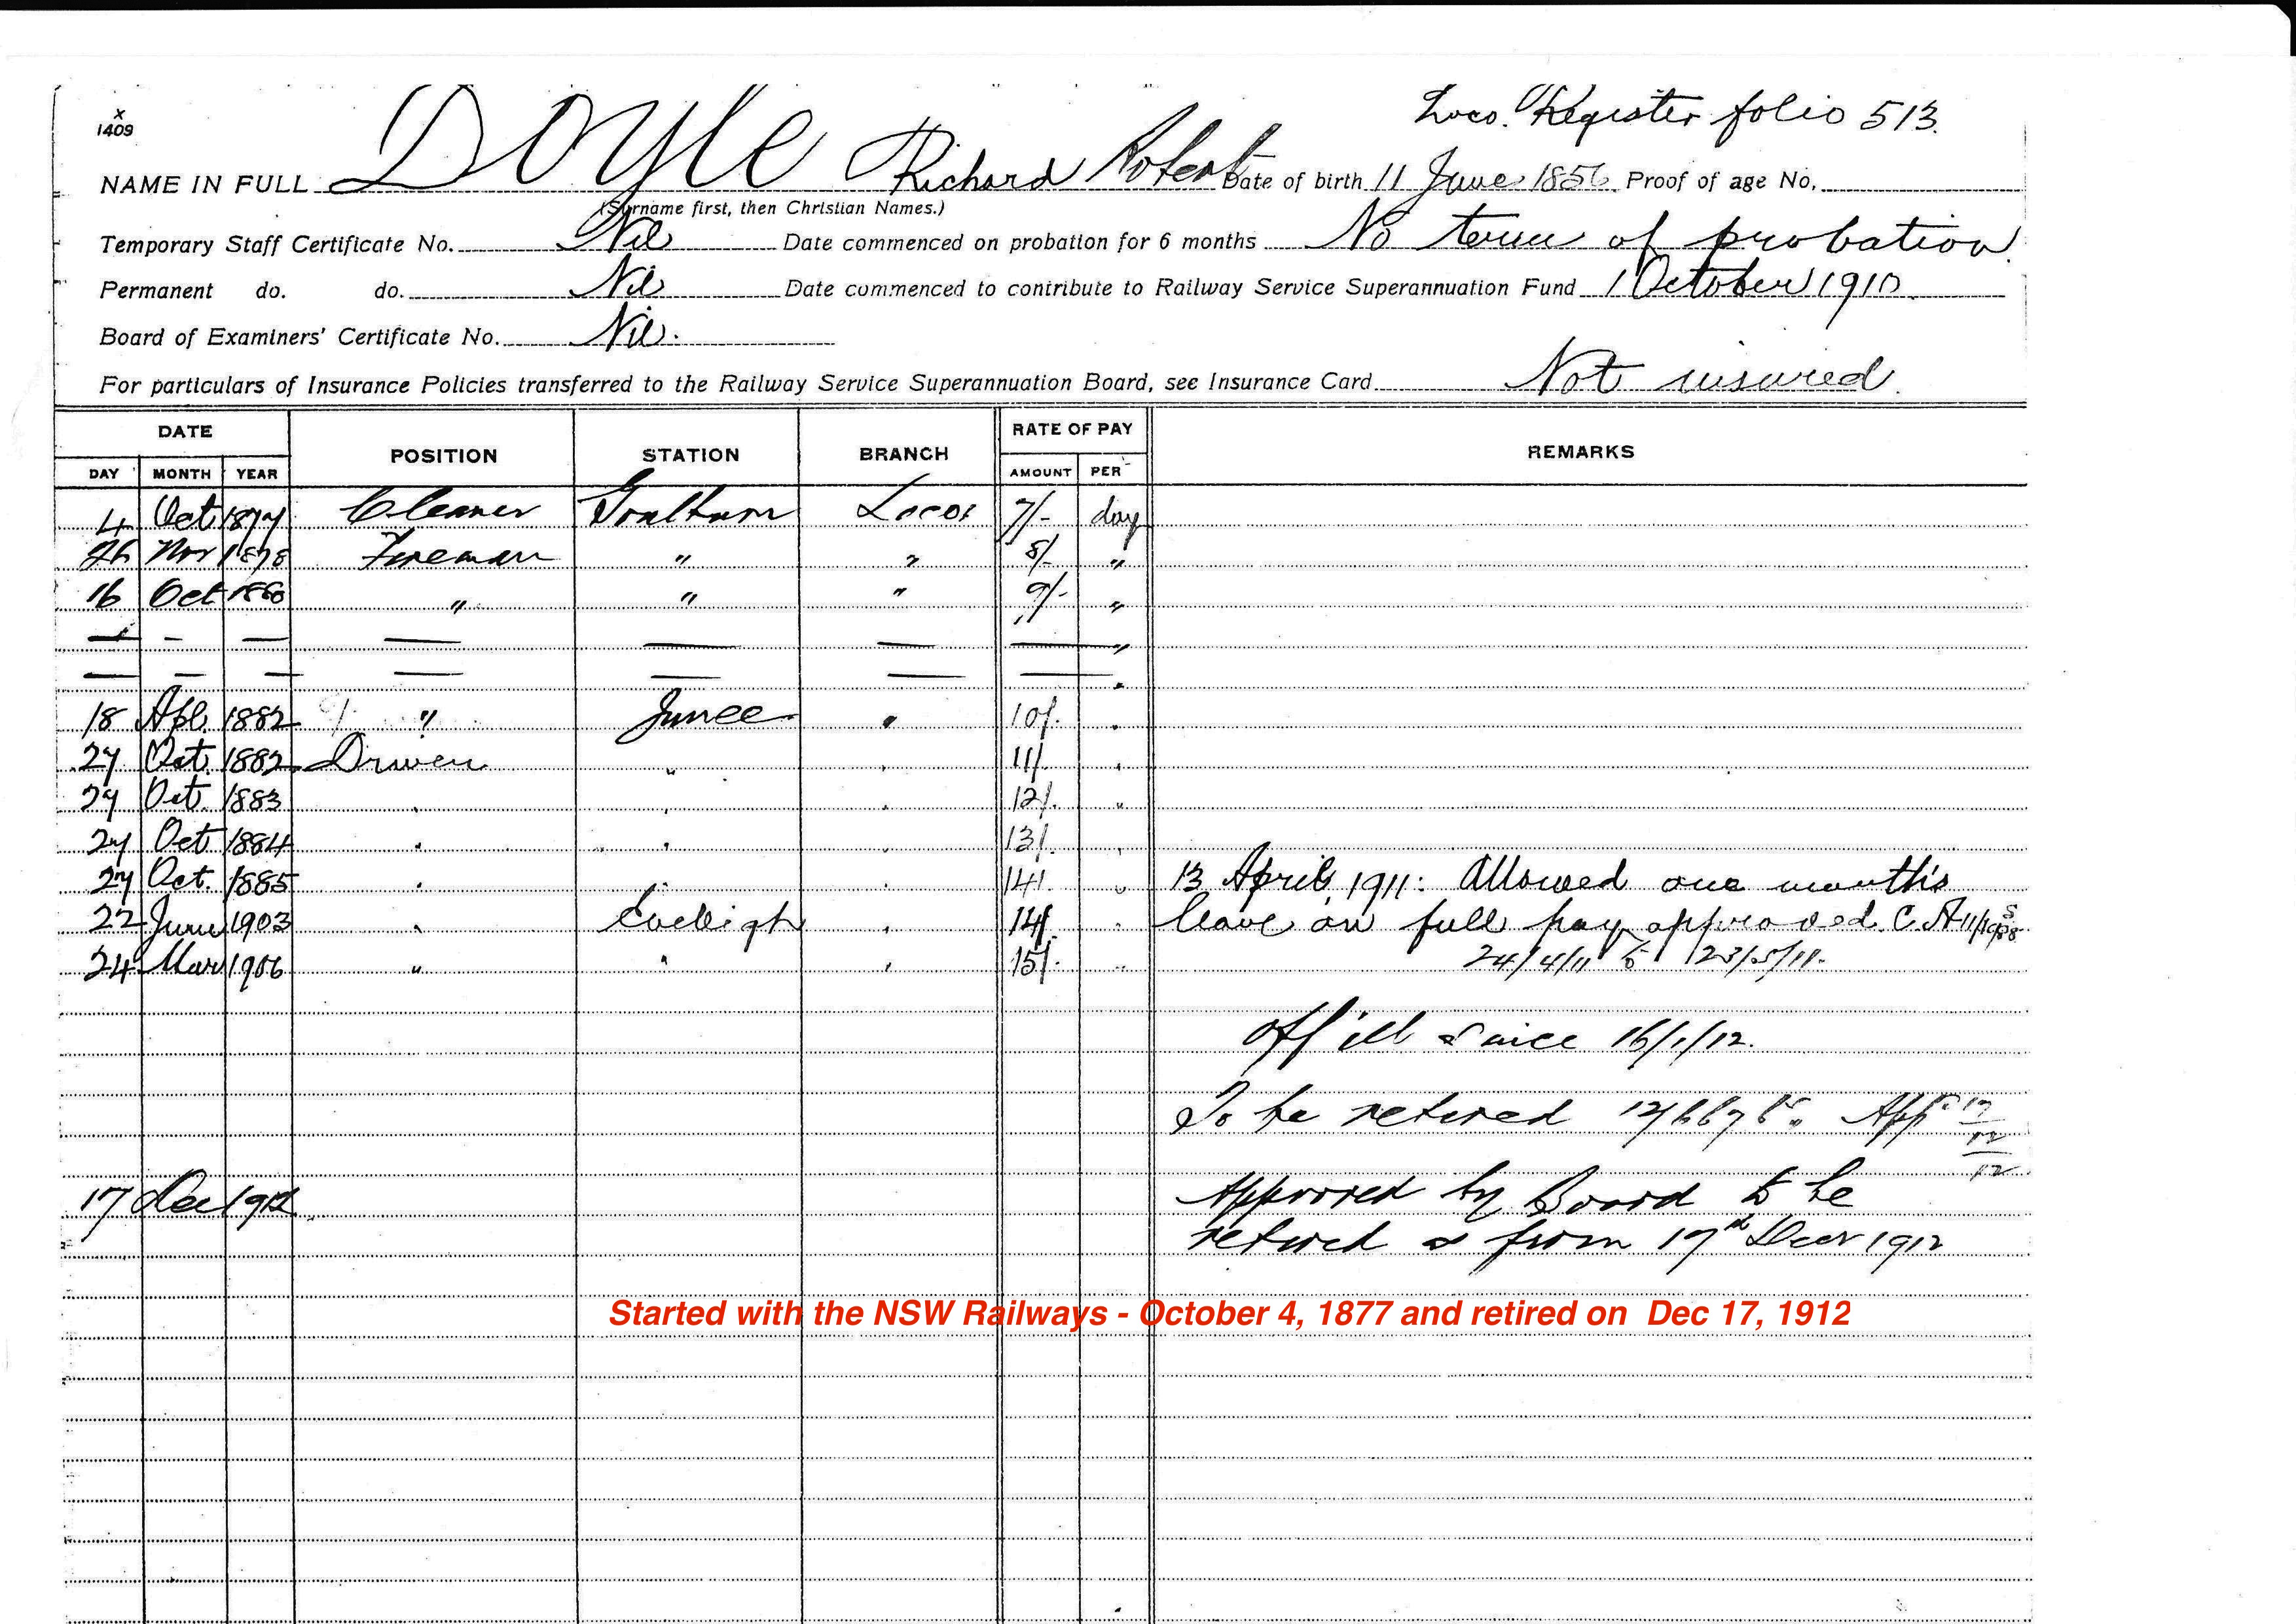 Loco. Register folio 513.
x
1409
NAME IN FULL Doyle Richard Robert Date of birth 11 June 1856. Proof of age No.
(Surname first, then Christian Names.)
Temporary Staff Certificate No. Nil Date commenced on probation for 6 months No term of probation.
Permanent do. do. Nil Date commenced to contribute to Railway Service Superannuation Fund 1 October 1910.
Board of Examiners' Certificate No. Nil.
For particulars of Insurance Policies transferred to the Railway Service Superannuation Board, see Insurance Card Not insured.
DATE POSITION STATION BRANCH RATE OF PAY REMARKS
DAY MONTH YEAR AMOUNT PER
4 Oct 1877 Cleaner Goulburn Locos 7/- day
26 Nov 1878 Fireman " " 8/- "
16 Oct 1880 " " " 9/- "
— - — — — — — "
— — — — — — — "
18 Apl. 1882 " Junee " 10/. "
27 Oct. 1882 Driver " " 11/. "
27 Oct. 1883 " " " 12/. "
27 Oct 1884 " " " 13/. "
27 Oct. 1885 " " " 14/. " 13 April, 1911: Allowed one month's
22 June 1903 " Eveleigh " 14/. " leave on full pay approved. C.A
24 Mar 1906 " " " 15/. " 24/4/11 to 23/5/11.
Off ill since 16/1/12.
To be retired App 17/12/12
17 Dec 1912 Approved by Board to be
retired as from 17th Decr 1912
Started with the NSW Railways - October 4, 1877 and retired on Dec 17, 1912